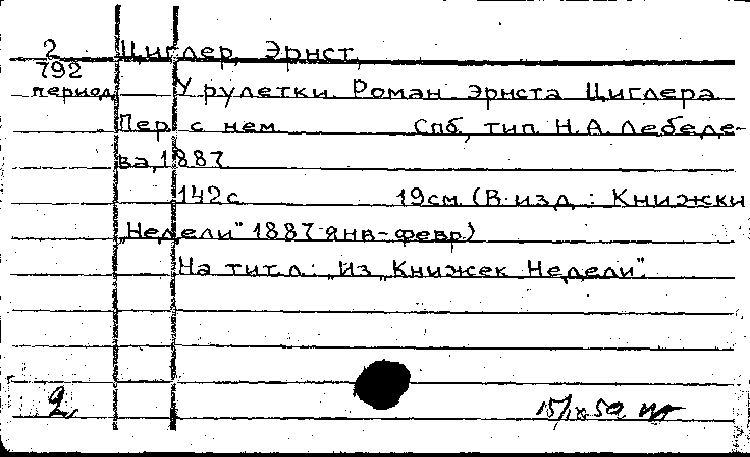 2 Циглер, Эрнст,
792
период. У рулетки. Роман Эрнста Циглера.
Пер. с нем. Спб, тип. Н.А. Лебеде-
ва, 1887
142 с. 19 см. (В изд.: Книжки
„Недели" 1887 янв-февр.)
На тит.л.: „Из „Книжек Недели".
2.